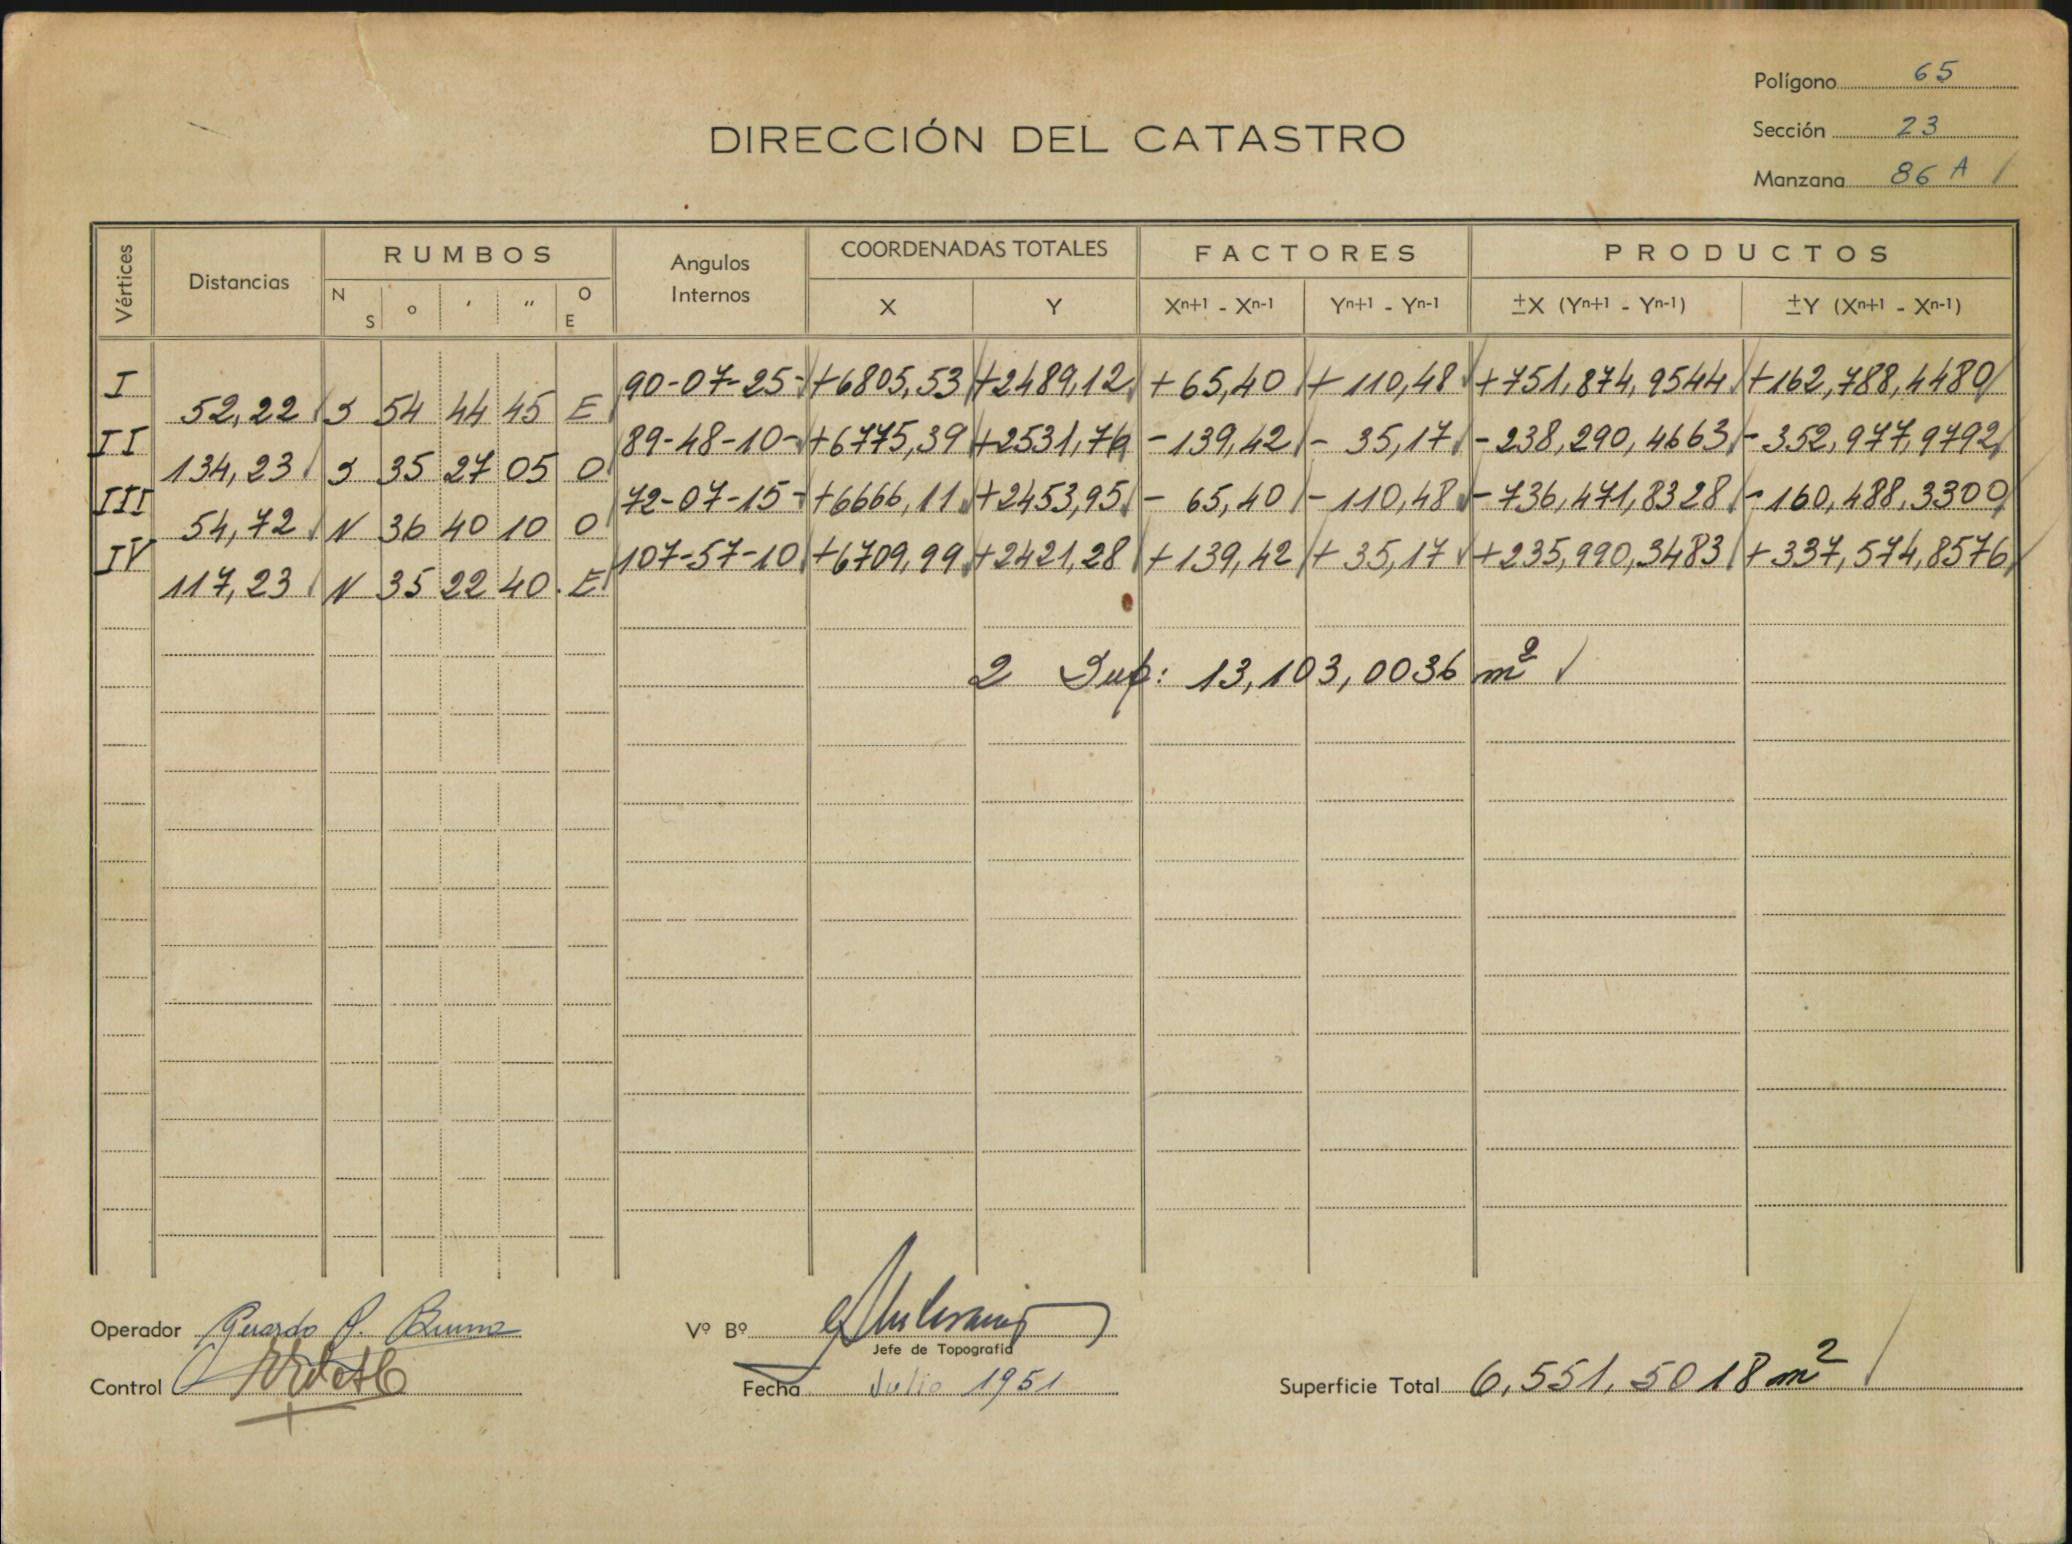 Polígono 65
DIRECCIÓN DEL CATASTRO
Sección 23
Manzana 86 A
Vértices Distancias RUMBOS Angulos Internos COORDENADAS TOTALES FACTORES PRODUCTOS
N S o ' " O E X Y Xn+1 - Xn-1 Yn+1 - Yn-1 ±X (Yn+1 - Yn-1) ±Y (Xn+1 - Xn-1)
I 90-07-25- +6805,53 +2489,12 +65,40 +110,48 +751,874,9544 +162,788,4480
52,22 S 54 44 45 E
II 89-48-10- +6775,39 +2531,76 -139,42 - 35,17 -238,290,4663 -352,977,9792
134,23 S 35 27 05 O
III 72-07-15- +6666,11 +2453,95 - 65,40 -110,48 -736,471,8328 -160,488,3300
54,72 N 36 40 10 O
IV 107-57-10 +6709,99 +2421,28 +139,42 + 35,17 +235,990,3483 +337,574,8576
117,23 N 35 22 40 E
2 Sup: 13,103,0036 m²
Operador
Vº Bº
Jefe de Topografía
Control
Fecha Julio 1951
Superficie Total 6,551,5018 m²